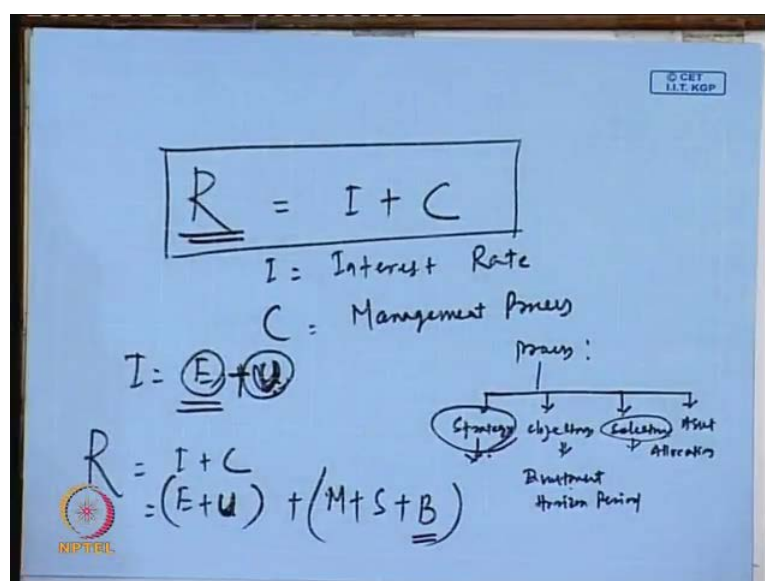 © CET
I.I.T. KGP
R = I + C
I = Interest Rate
C = Management Process
I = E + U
Process :
Strategy Objectives Selection Asset
Allocation
Investment
Horizon Period
R = I + C
= (E + U) + (M + S + B)
NPTEL